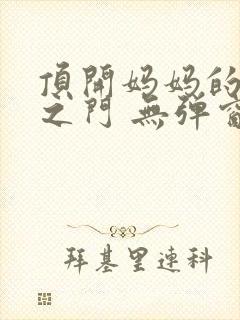 頂開妈妈的
之门 無弹窗
拜基里連科